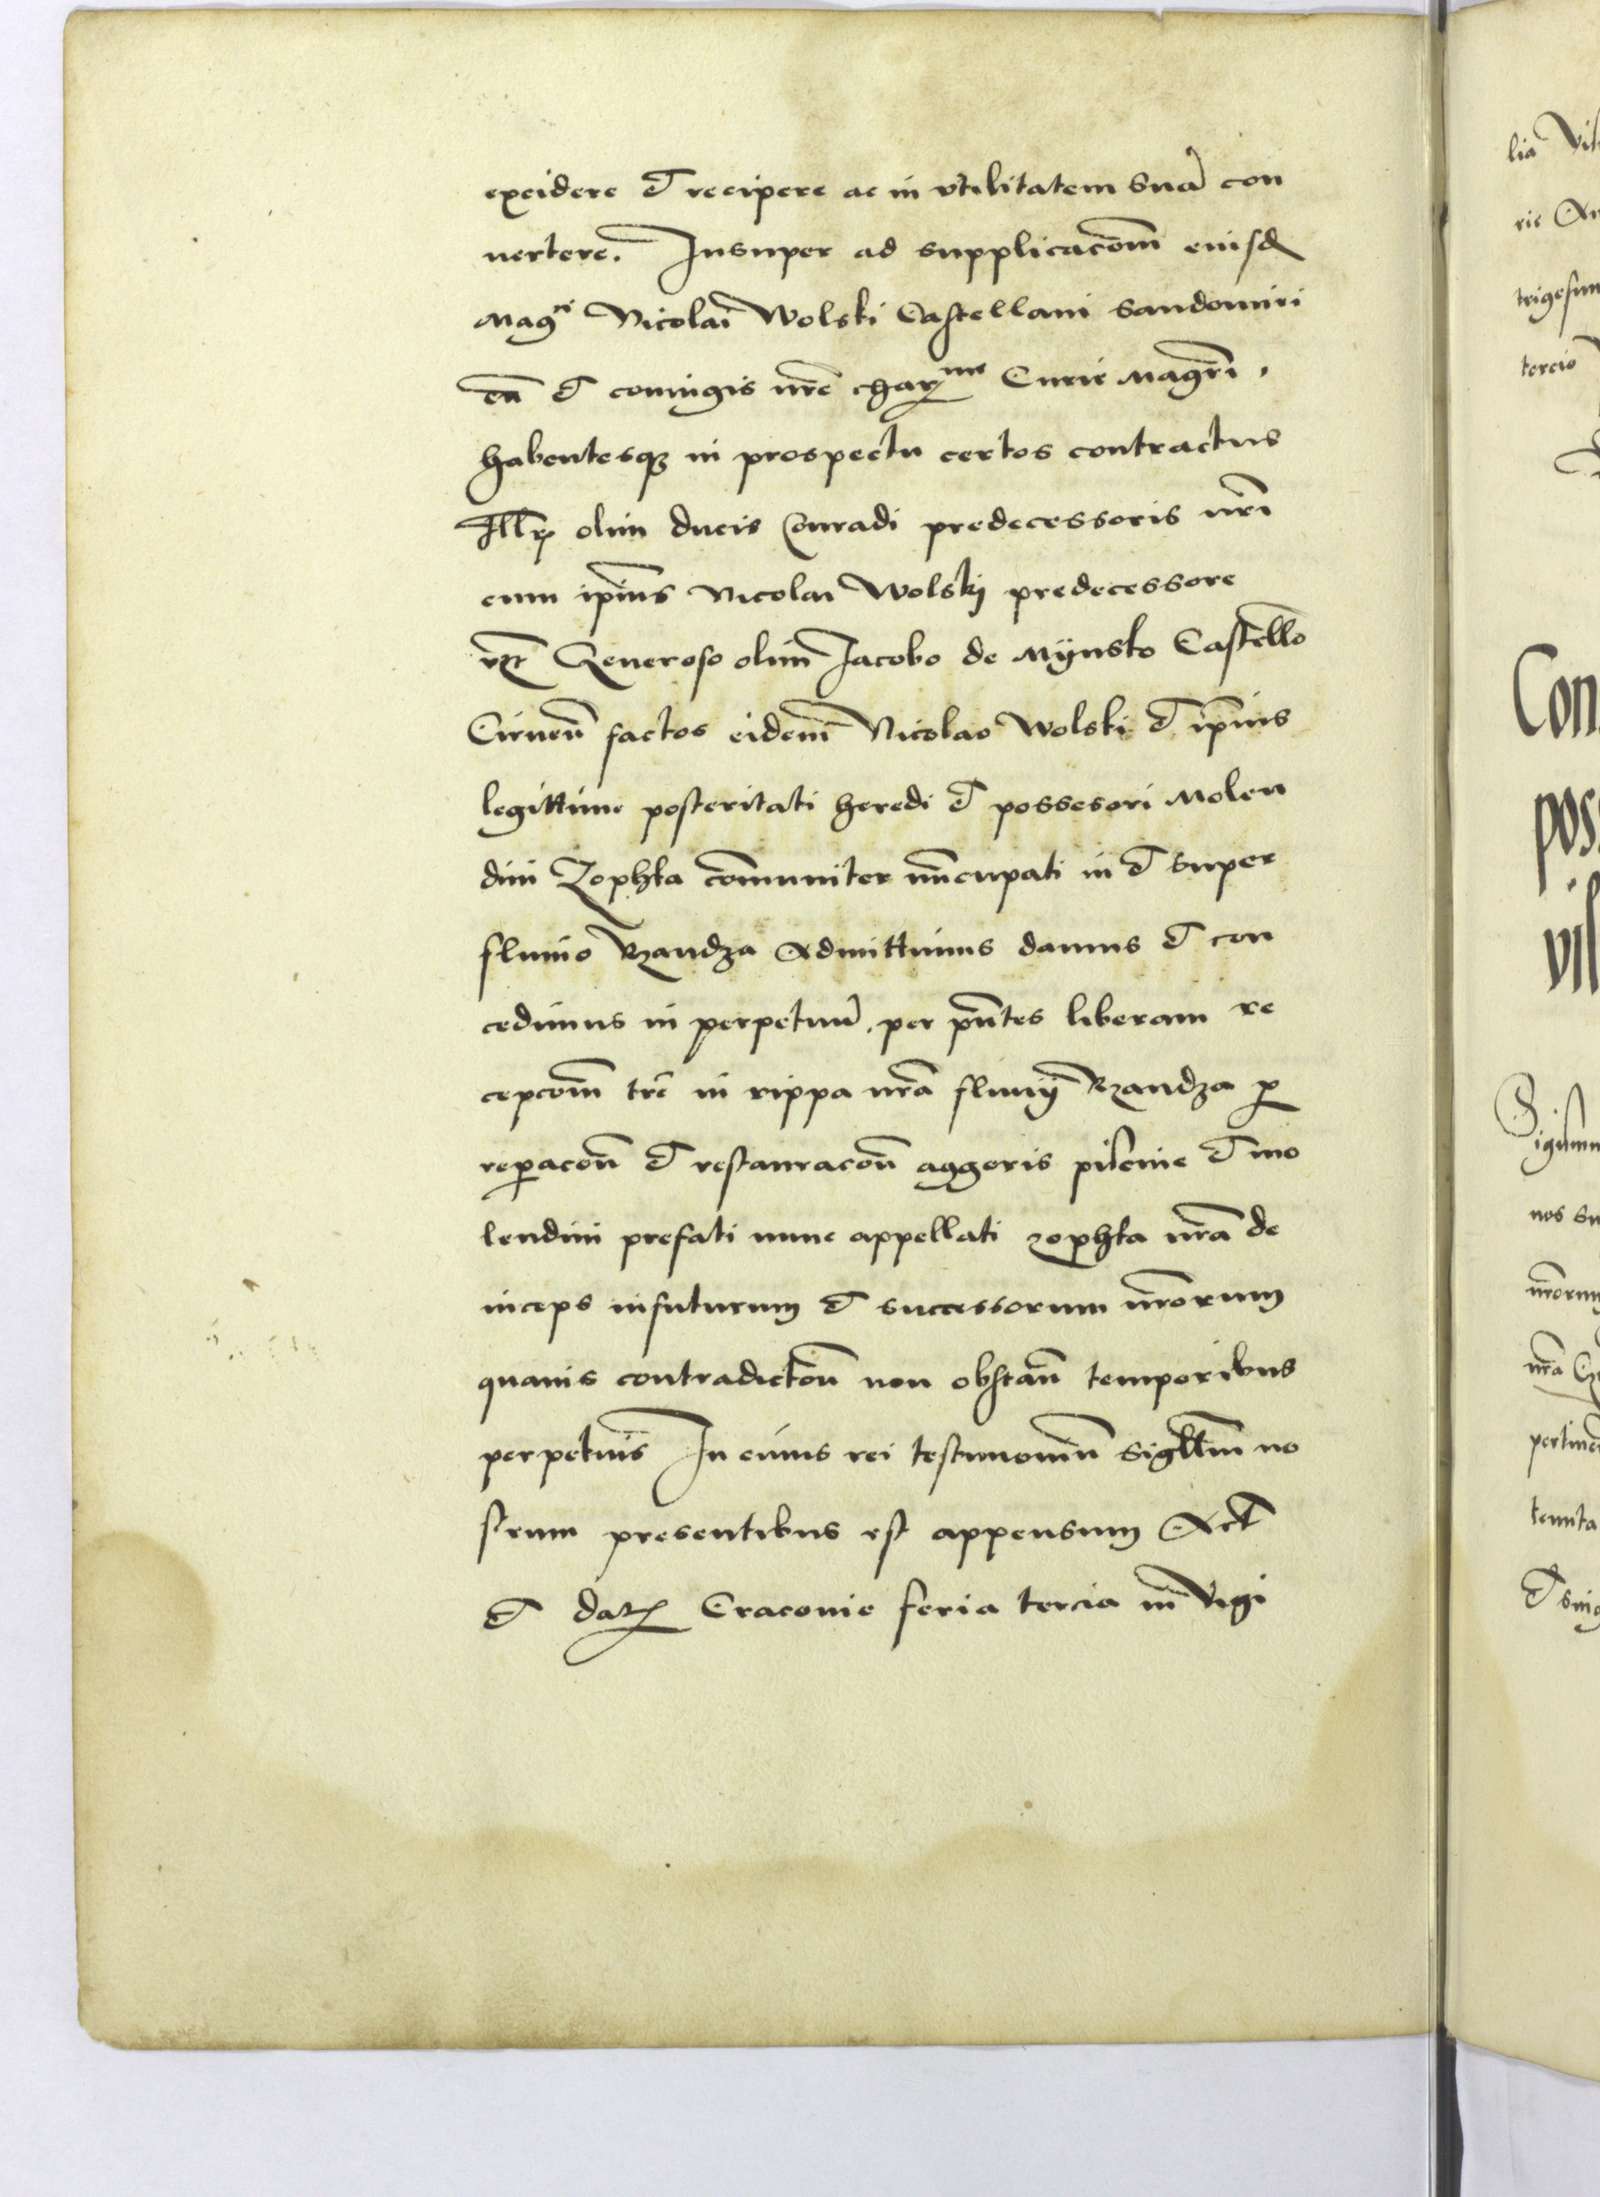 excidere et recipere ac in vtilitatem suā con
uertere. Insuper ad supplicacōm eiusd
Magci Nicolai Wolski Castellani Sandomiri
eń et coniugis nrē charme Curie Magrī,
habentesq in prospectu certos contractus
Illr olim ducis Conradi predecessoris nrī
cum ipīus Nicolai Wolskj predecessore
vzt Generoso olim Jacobo de Mÿnsko Castellō
Cirneń factos eidem Nicolao Wolski et ipīus
legittime posteritati heredi et possesori Molen
dini Zophta cōmuniter nūcupati in et super
fluuio Rzandza Admittimus damus et con
cedimus in perpetuū per pn̄tes liberam re
cepcōm trē in rippa nrā fluuÿ Rzandza p
repacōn et restauracōn aggeris piscine et mo
lendini prefati nunc appellati zophta nrā de
inceps infuturum et successorum nrōrum
quauis contradictōn non obstań temporibus
perpetuis In cuius rei testimoniū Sigillūm no
strum presentibus est appensum Act
et datz Cracouie feria tercia in Vigi
lia
ric
tercio
Con
poss
vil
nos su
nrōrum
nrā
tenuta